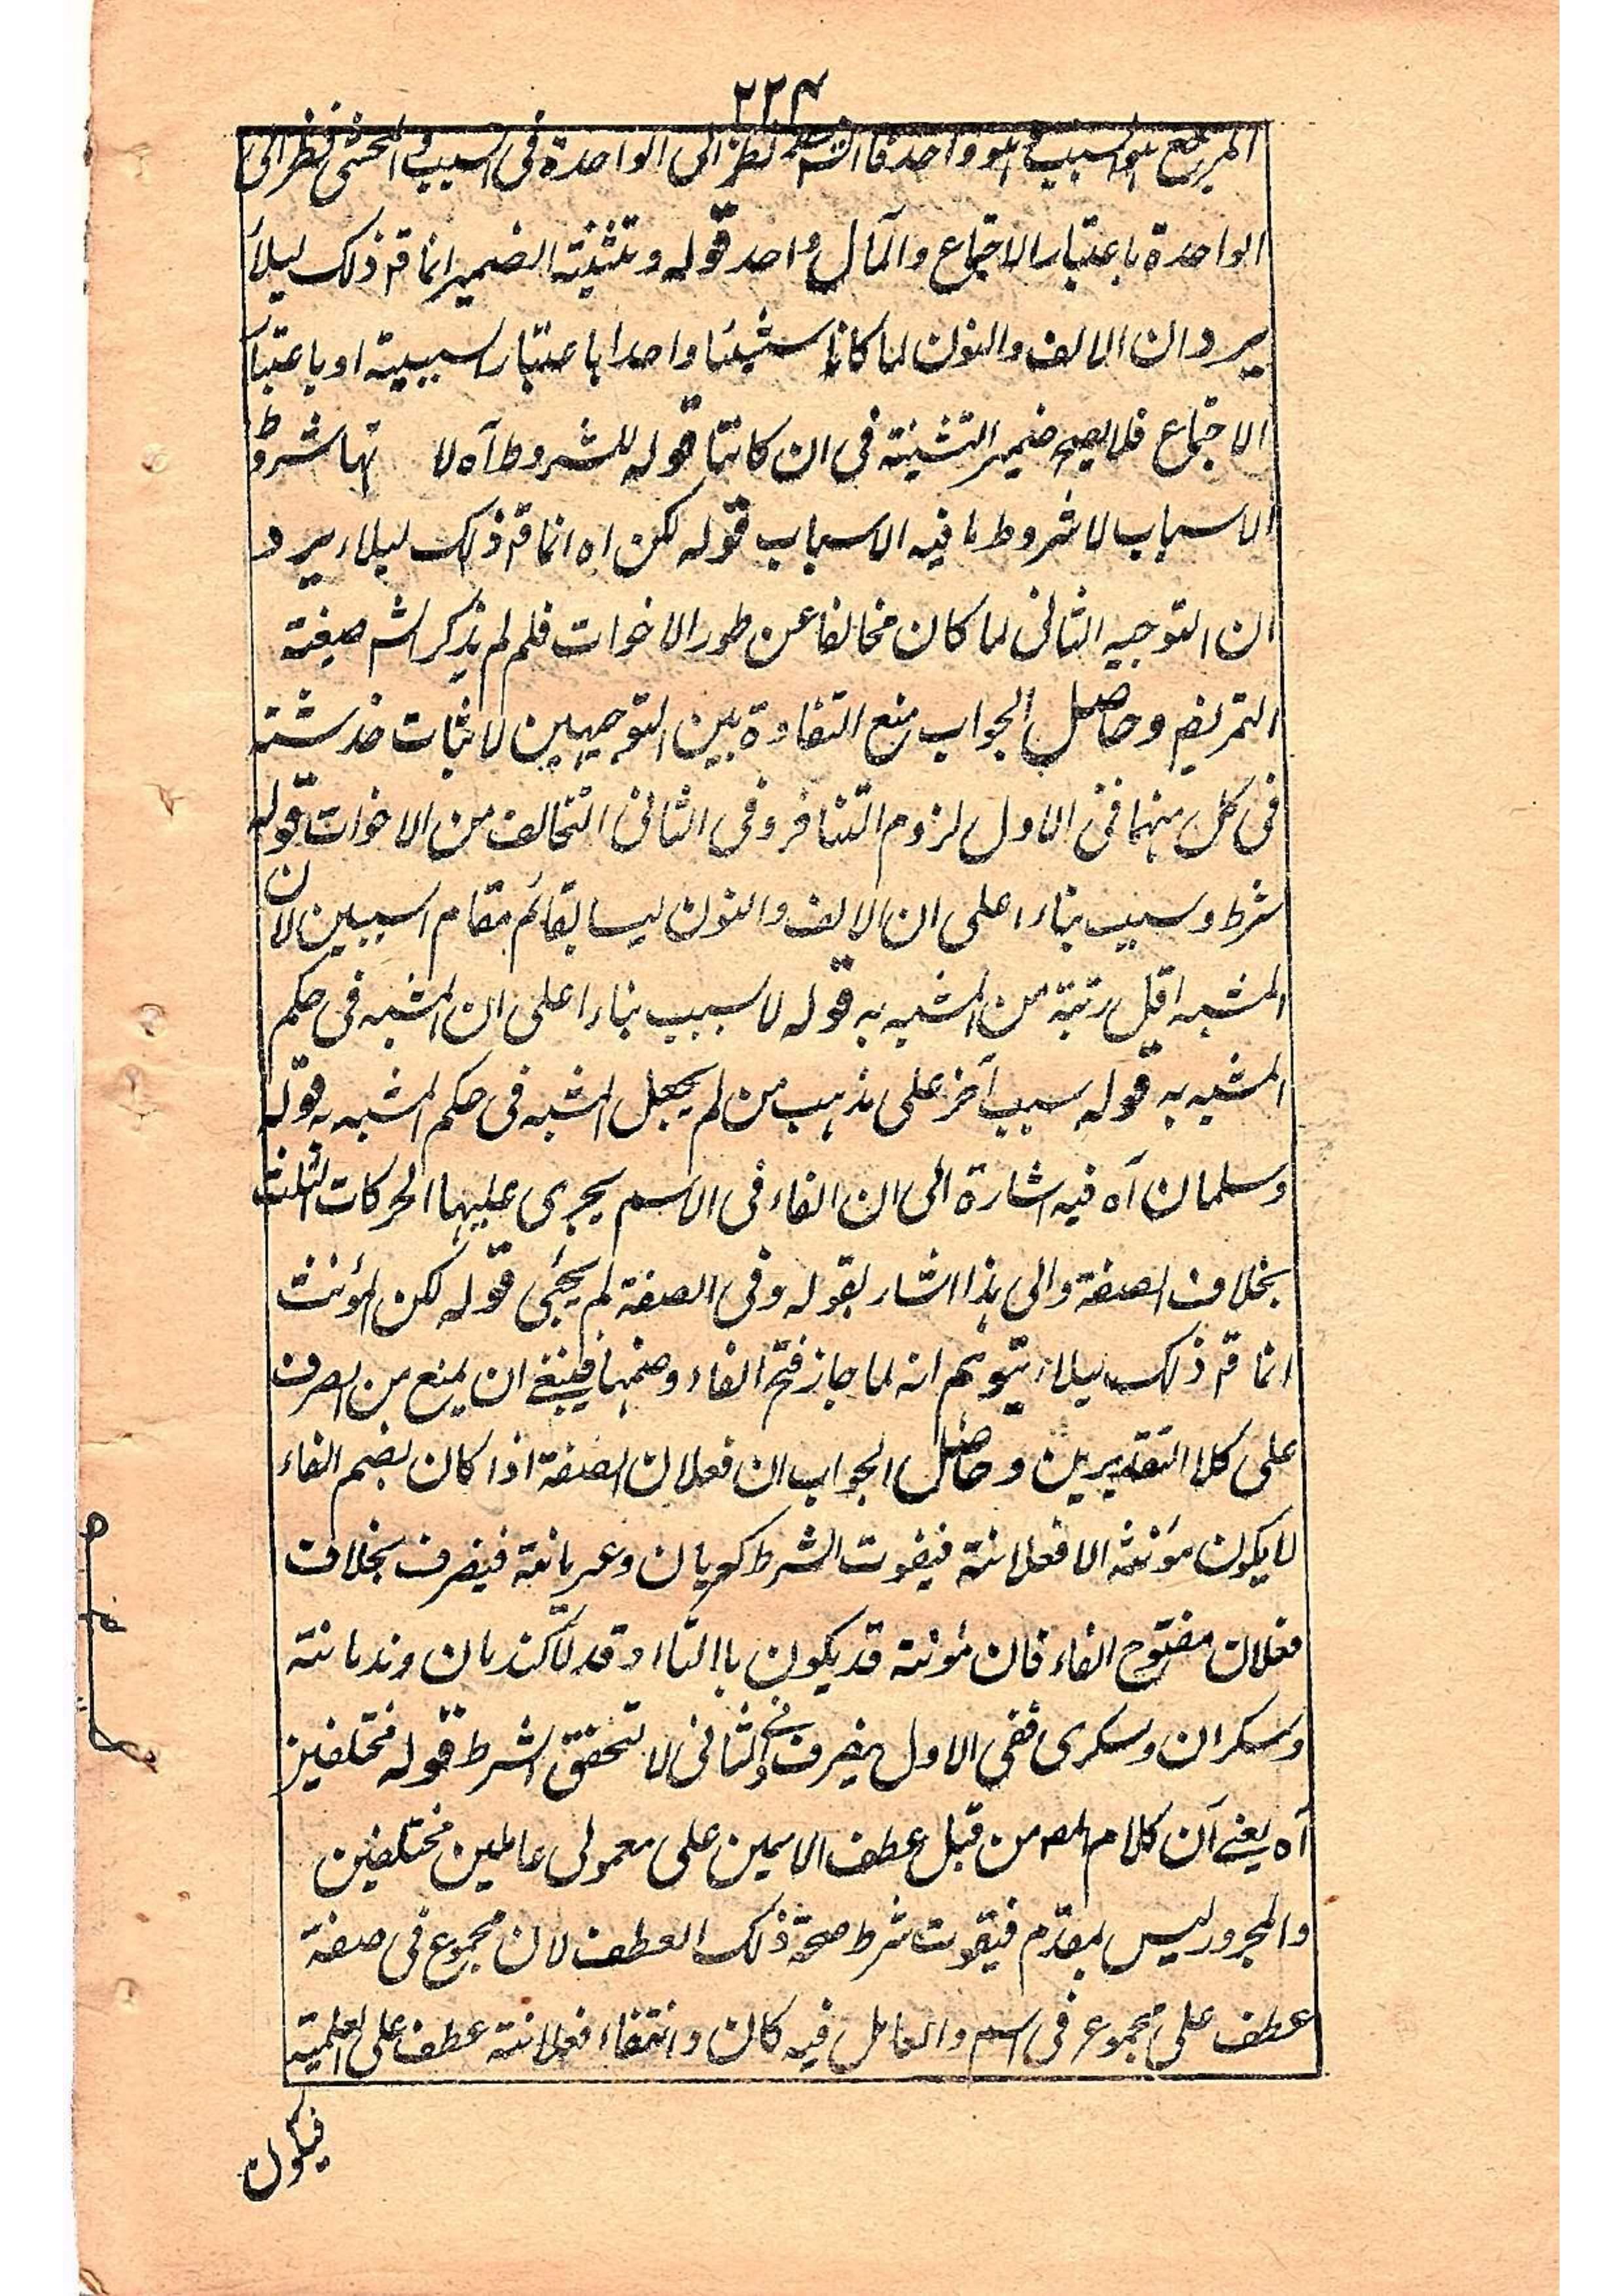 ٢٢٤
المرجع السبب هو واحد فالشم نظر الى الواحدة فى السبب والمحشى فنظر الى
الواحدة باعتبار الاجتماع والمآل واحد قوله وتثنية الضمير انما قد ذلك ليلأ
يرد ان الالف والنون لما كانا سشيئا واحدا باعتبار سببية او باعتبار
الاجتماع فلا يصح ضمير التثنية فى ان كانتا قوله للشروط آه لا نها شروط
الاسباب لا شروط ما فيه الاسباب قوله لكن اه انما قد ذلك ليلاء يرد
ان التوجيه الثانى لما كان مخالفا عن طور الاخوات فلم لم يذكر الشم صيغة
التمريض وحاصل الجواب منع التفاوة بين التوجيهين لاثبات خدشته
فى كل منهما ففى الاول لزوم التنافر وفى الثانى التخالف من الاخوات قوله
شرط وسبب بناء اعلى ان الالف والنون ليسا بقائم مقام السببين لان
المشبه اقل رتبة من المشبه به قوله لا سبب بناء اعلى ان المشبه فى حكم
المشبه به قوله سبب آخر على مذهب من لم يجعل المشبه فى حكم المشبه به قوله
وسلمان آه فيه اشارة الى ان الفاء فى الاسم يجرى عليها الحركات الثلث
بخلاف الصفة والى هذا اشار بقوله وفى الصفة لم يجئى قوله لكن المؤنث
انما قد ذلك ليلاء يتوهم انه لما جاز فتح الفاء وضمها فينبغى ان يمنع من الصرف
على كلا التقديرين وحاصل الجواب ان فعلان الصفة اذا كان بضم الفاء
لا يكون مؤنثه الا فعلانة فيفوت الشرط كعريان وعريانة فينصرف بخلاف
فعلان مفتوح الفاء فان مؤنثه قد يكون باالتاء وقد لا كندمان وندمانة
وسكران وسكرى ففى الاول ينصرف وفى الثانى لا لتحقق الشرط قوله مختلفين
آه يعنى ان كلام المص من قبل عطف الاسمين على معمولى عاملين مختلفين
والمجرور ليس بمقدم فيفوت شرط صحة ذلك العطف لان مجموع فى صفة
عطف على مجموع فى اسم والعامل فيه كان وانتفاء فعلانة عطف على العلمية
فيكون